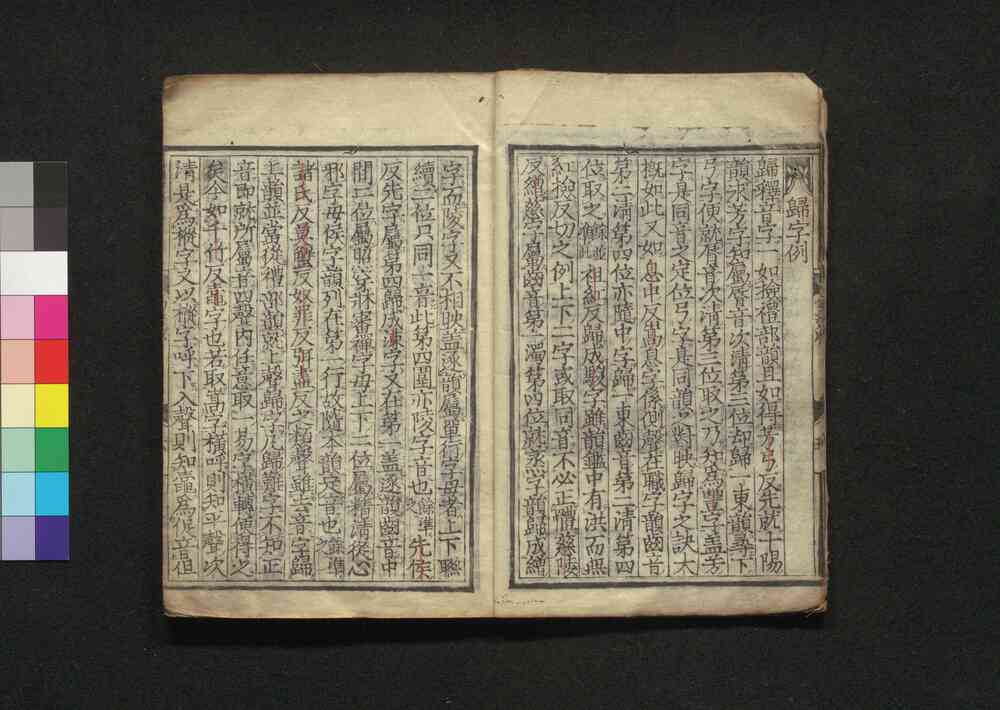 歸字例
歸釋音字一如檢禮部韻且如得芳弓反先就十陽
韻求芳字知屬脣音次清第三位却歸一東韻尋下
弓字便就脣音次清第三位取之乃知為豐字蓋芳
字是同音之定位弓字是同韻之對映歸字之訣大
概如此又如息中反嵩息字係側聲在職字韻齒音
第二清第四位亦隨中字歸一東齒音第二清第四
位取之餘並準此祖紅反歸成騣字雖韻鑑中有洪而無
紅撿反切之例上下二字或取同音不必正體慈陵
反繒慈字屬齒音第一濁第四位就蒸字韻歸成繒
字而陵字又不相映蓋逐韻屬單行字母者上下聯
續二位只同一音此第四圍亦陵字音也餘準之先侯
反先字屬第四歸成涑字又在第一蓋逐韻齒音中
間二位屬照穿牀審禪字母上下二位屬精清從心
邪字母侯字韻列在第一行故隨本韻定音也餘準之
諸氏反莫蟹反奴罪反弭盡反之類聲雖去音字歸
上韻並當從禮部韻就上聲歸字凡歸難字不知正
音即就所屬音四聲內任意取一易字橫轉便得之
矣今如千竹反字也若取嵩字橫呼則知平聲次
清是為樅字又以樅字呼下入聲則知為促音但